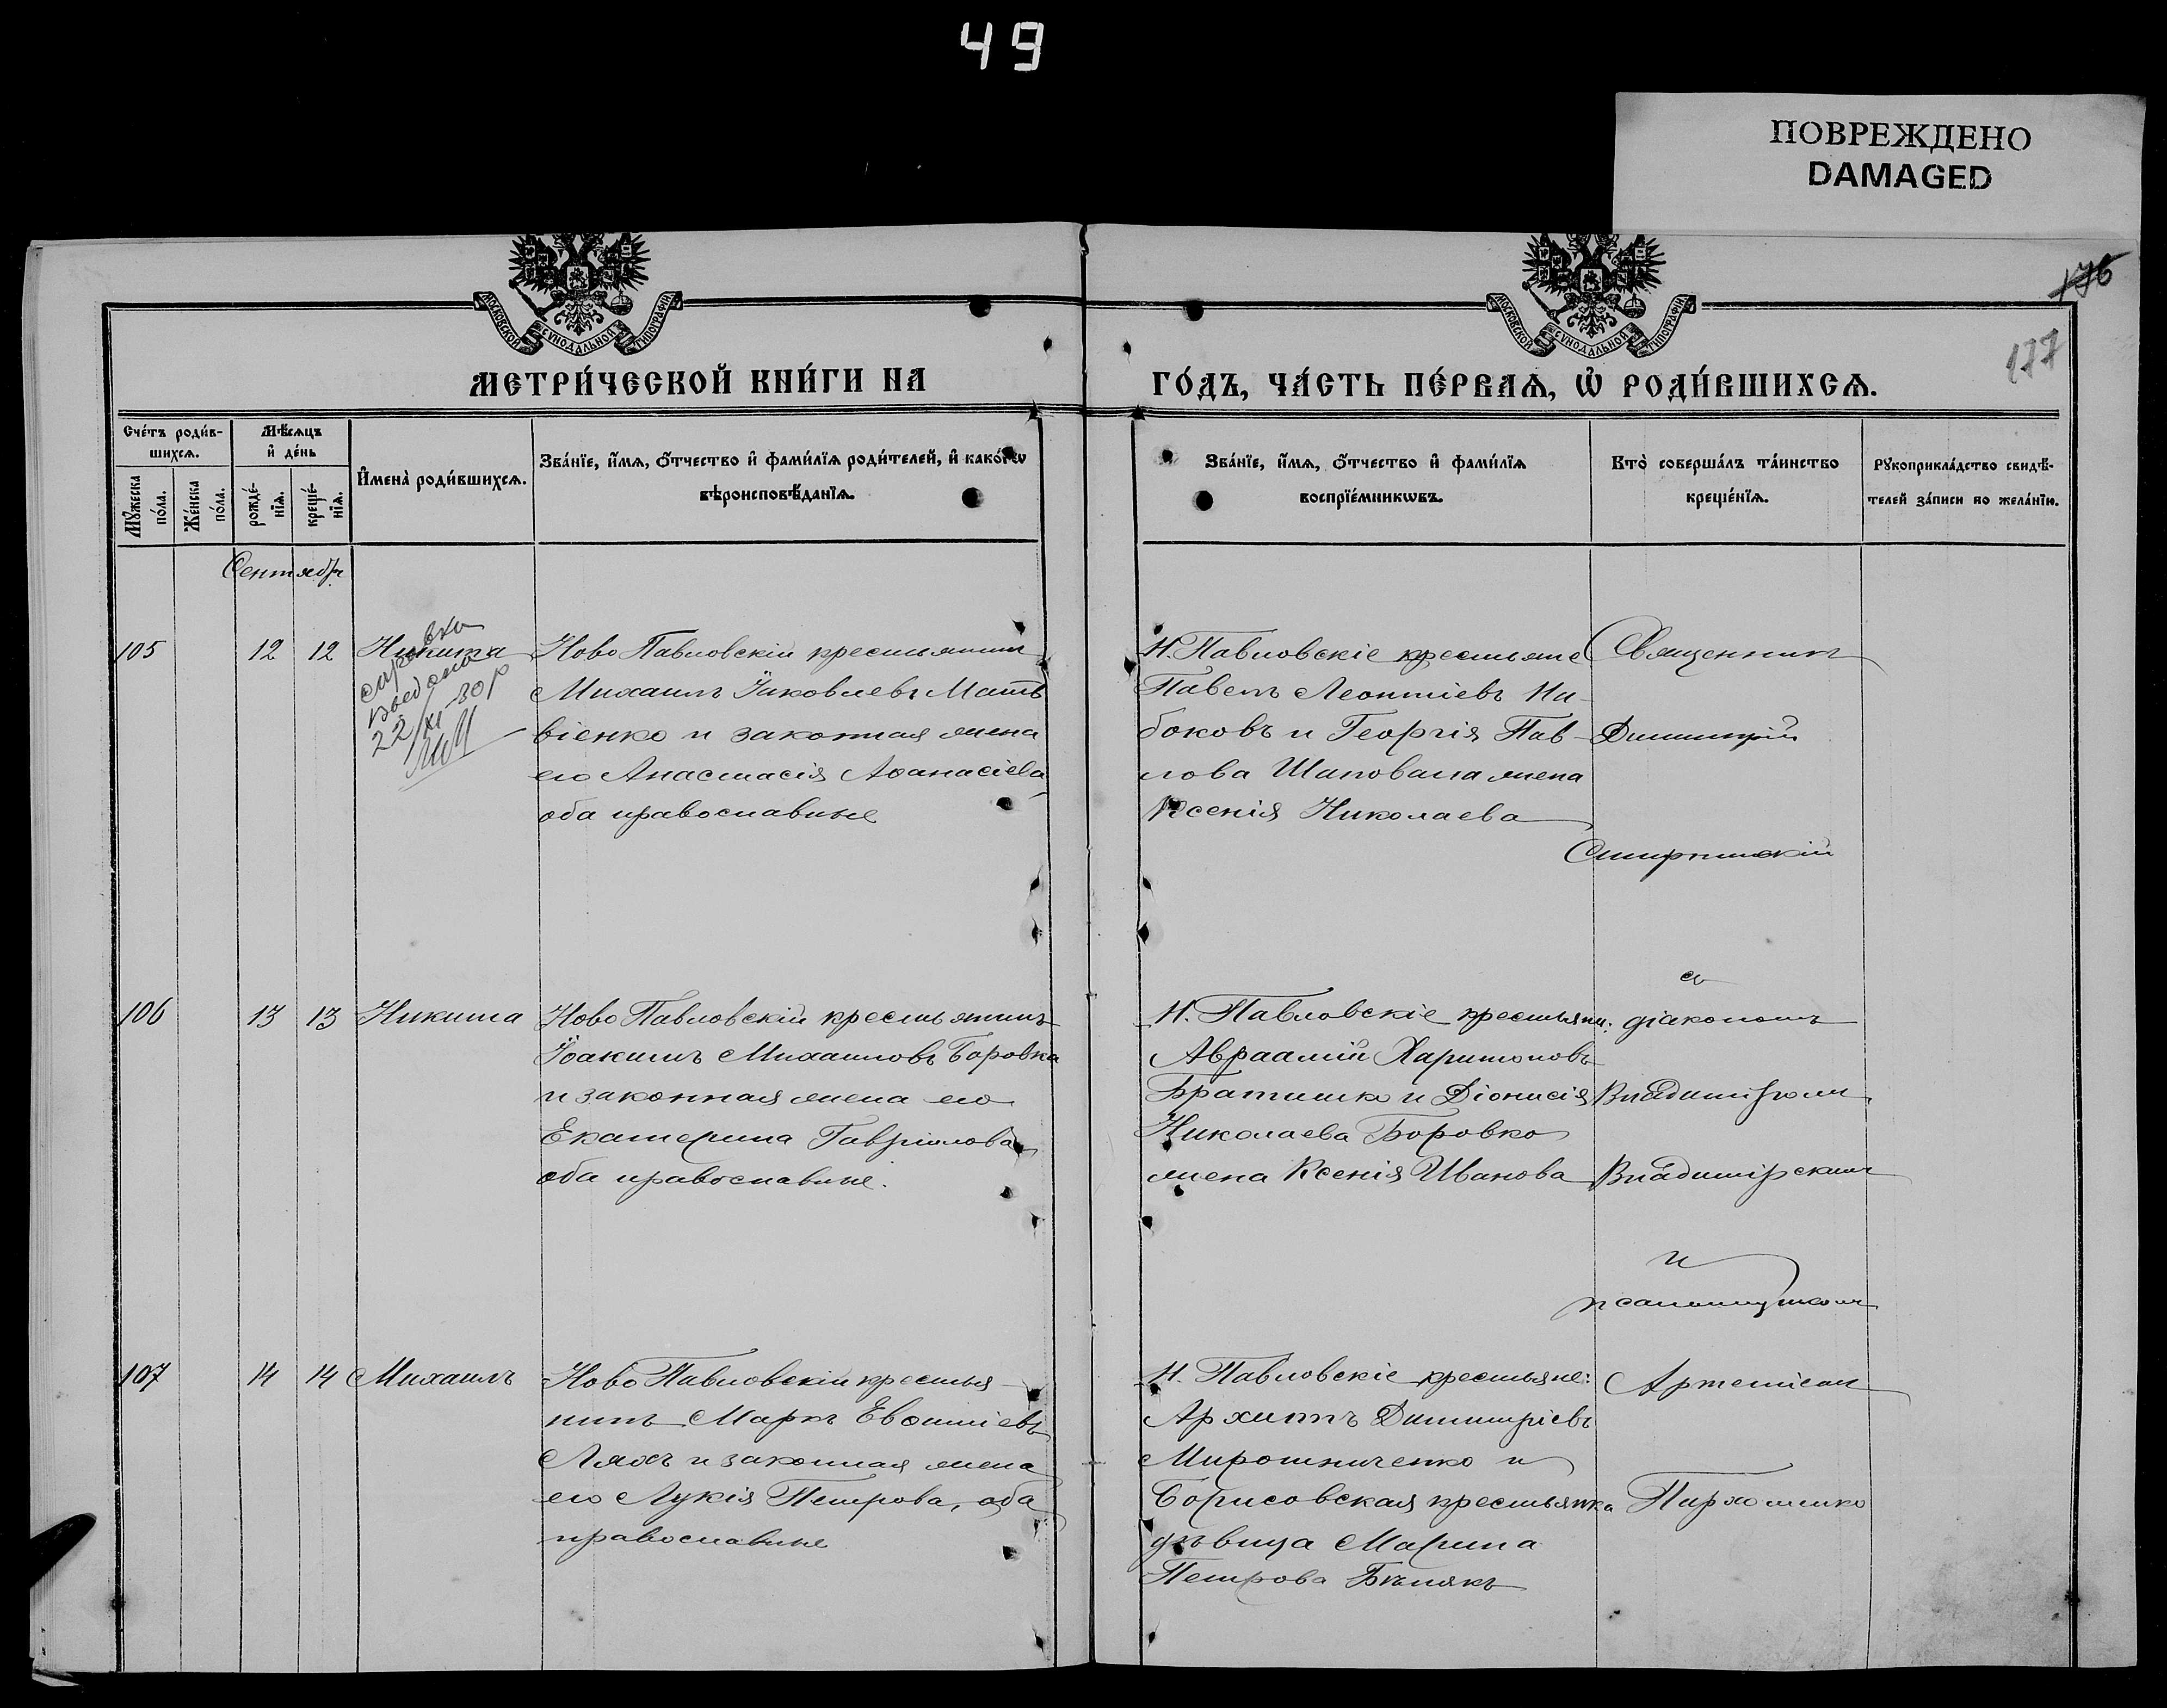 49
ПОВРЕЖДЕНО
DAMAGED
176
177
МОСКОВСКОЙ СѴНОДАЛЬНОЙ ТИПОГРАФІИ
МОСКОВСКОЙ СѴНОДАЛЬНОЙ ТИПОГРАФІИ
МЕТРИ́ЧЕСКОЙ КНИ́ГИ НА
ГО́ДЪ, ЧА́СТЬ ПЕ́РВАѦ, Ѡ҆ РОДИ́ВШИХСѦ.
Сче́тъ роди́в-
шихсѧ.
Мꙋ́жеска
по́ла.
Же́нска
по́ла.
Мѣ́сѧцъ
и҆ де́нь
рожде́-
нїѧ.
креще́-
нїѧ.
И҆мена̀ роди́вшихсѧ.
Зва́нїе, и҆́мѧ, ѻ҆́тчество и҆ фами́лїѧ роди́телей, и҆ како́гѡ
вѣроисповѣ́данїѧ.
Зва́нїе, и҆́мѧ, ѻ҆́тчество и҆ фами́лїѧ
воспрїе́мникѡвъ.
Кто̀ соверша́лъ та́инство
креще́нїѧ.
Рꙋкоприкла́дство свидѣ́-
телей за́писи по жела́нїю.
Сентябрь
105 12 12 Никита
22/XI-30 р
Ново Павловскій крестьянинъ
Михаилъ Іаковлевъ Матѣ
віенко и законная жена
его Анастасія Аѳанасіева
оба православные
Н. Павловскіе крестьяне
Павелъ Леонтіевъ На-
боковъ и Георгія Пав-
лова Шаповала жена
Ксенія Николаева
Священникъ
Димитрій
106 13 13 Никита
Ново Павловскій крестьянинъ
Іоакимъ Михаиловъ Боровка
и законная жена его
Екатерина Гавріилова
оба православные.
Н. Павловскіе крестьяни:
Авраамій Харитоновъ
Братишко и Діонисія
Николаева Боровко
жена Ксенія Иванова
съ
діакономъ
Владиміромъ
Владимірскимъ
и
псаломщикомъ
107 14 14 Михаилъ
Ново Павловскій крестья-
нинъ Маркъ Евѳиміевъ
Ляхъ и законная жена
его Лукія Петрова, оба
православные
Н. Павловскіе крестьяне:
Архипъ Димитріевъ
Мирошниченко и
Борисовская крестьянка
дѣвица Марина
Петрова Бѣлякъ
Артеміемъ
Пархоменко